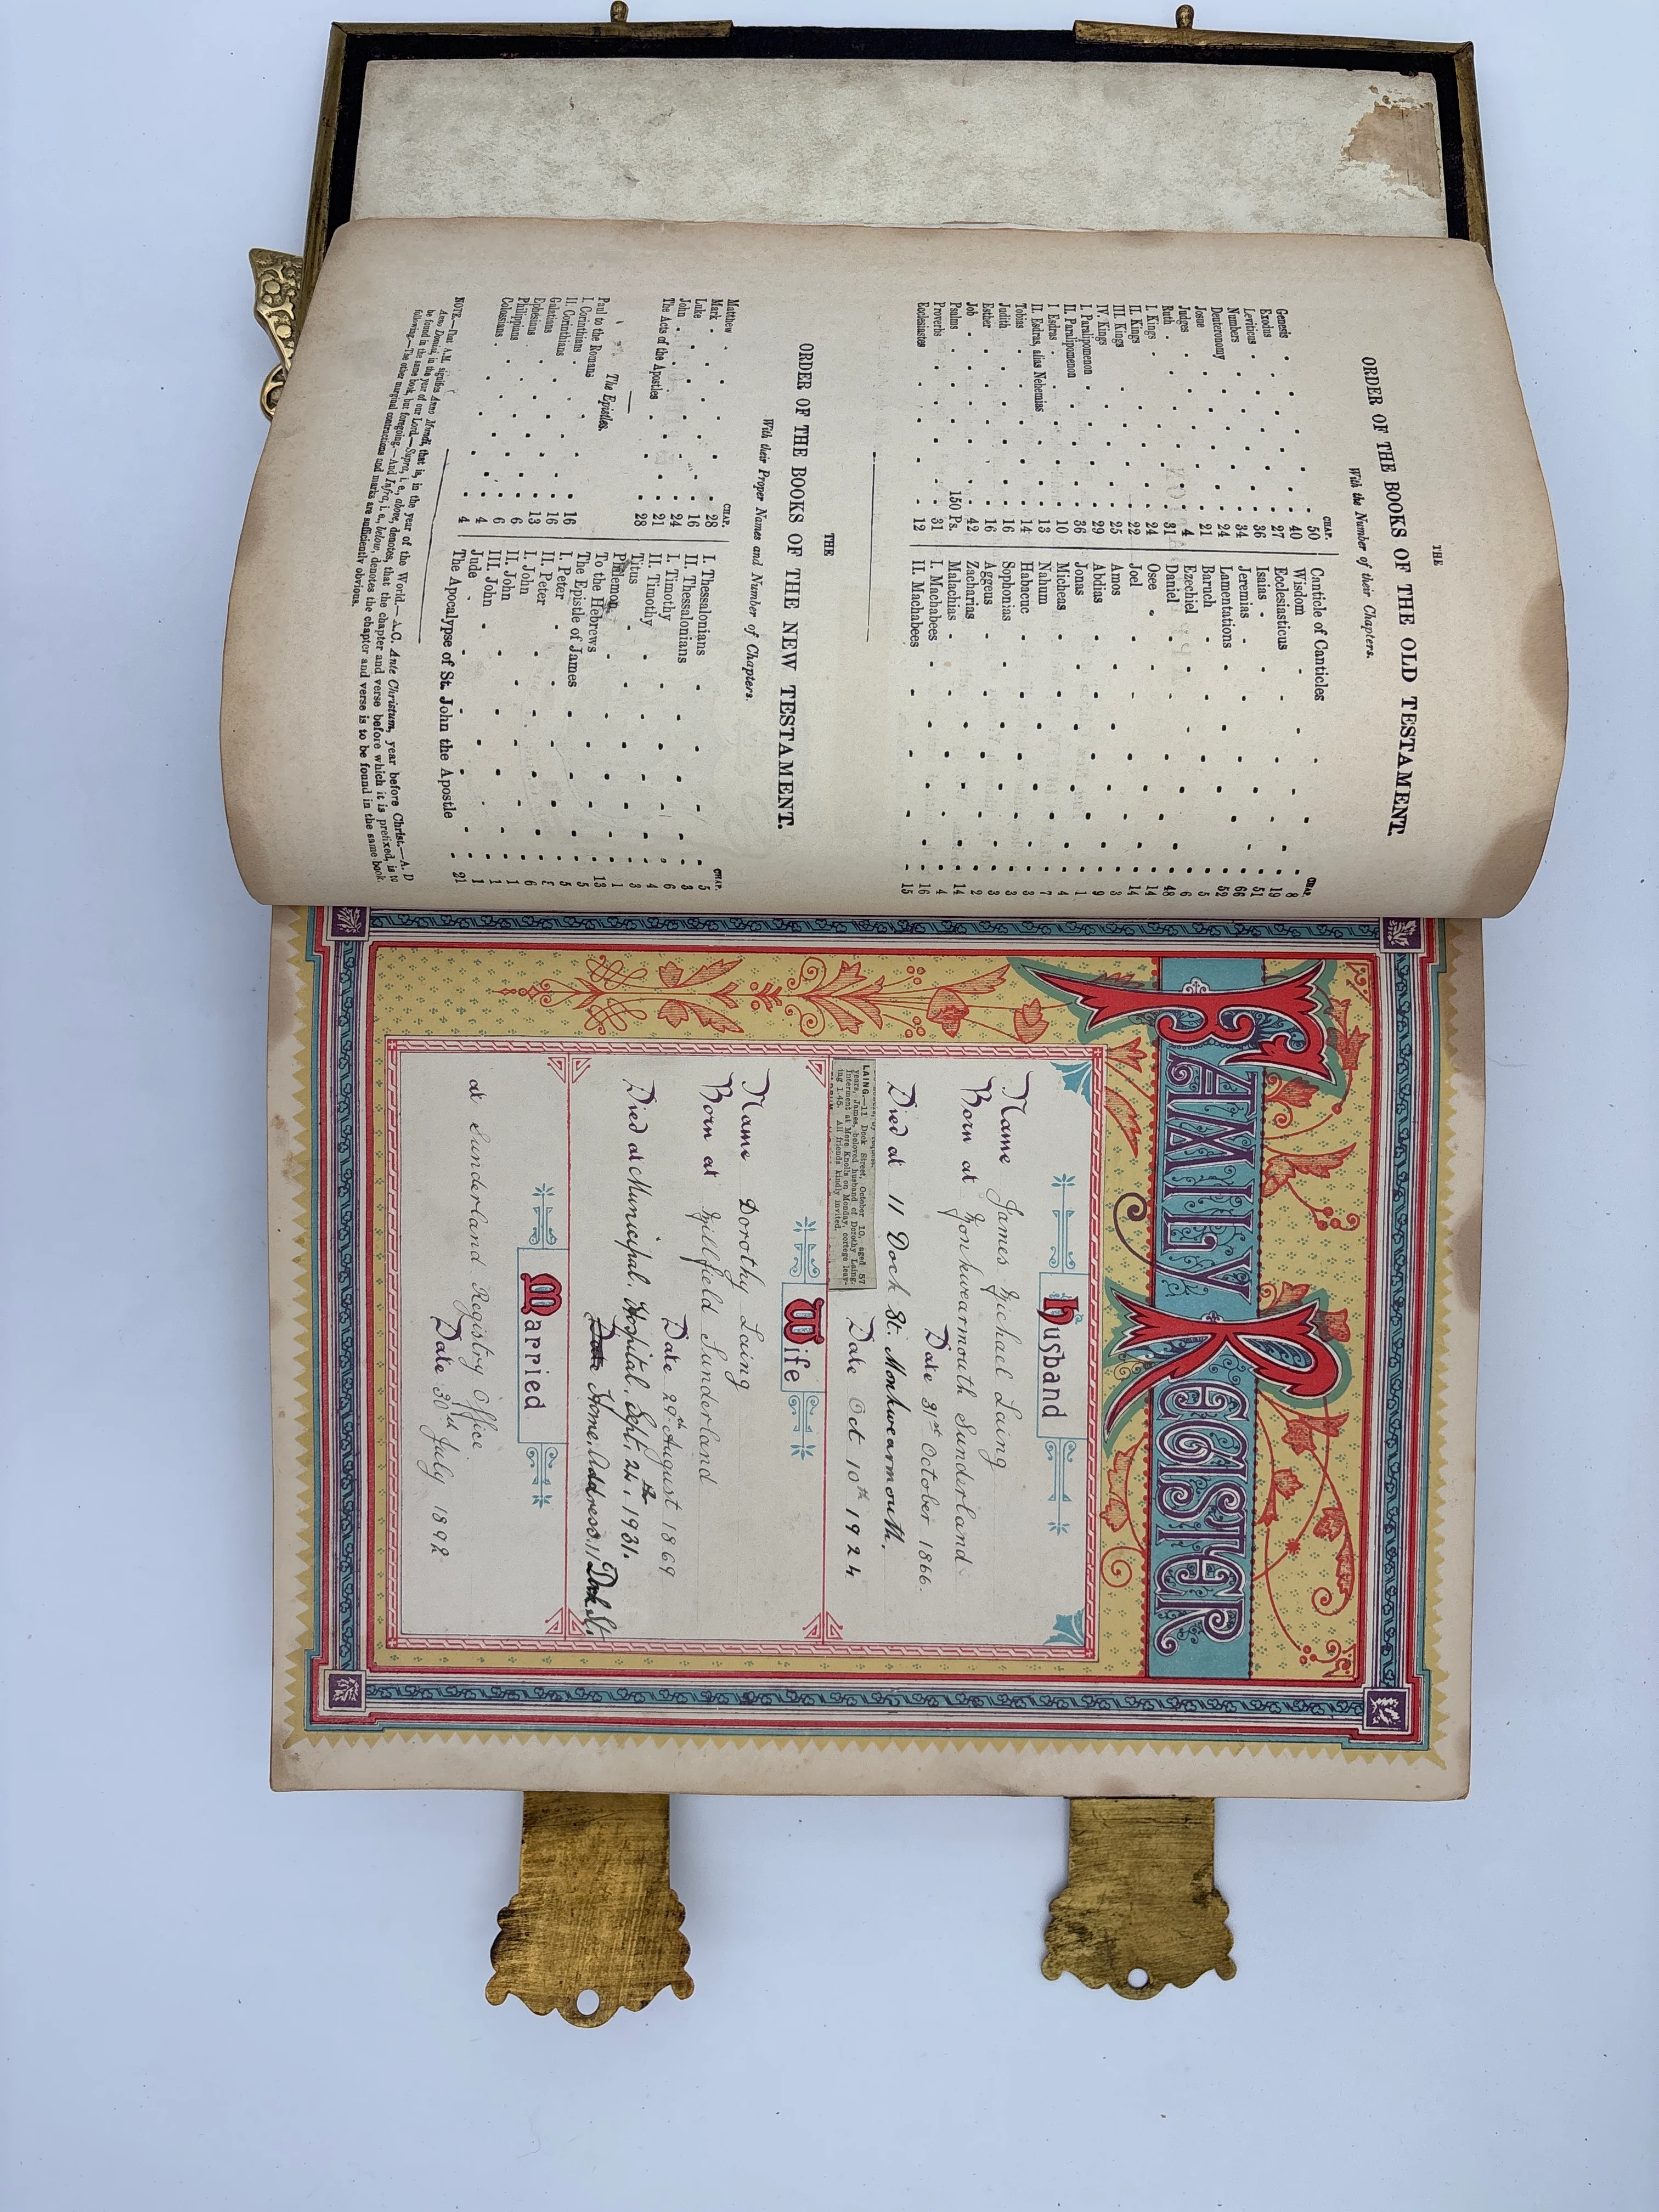 THE
ORDER OF THE BOOKS OF THE OLD TESTAMENT.
With the Number of their Chapters.
CHAP.
Genesis 50
Exodus 40
Leviticus 27
Numbers 36
Deuteronomy 34
Josue 24
Judges 21
Ruth 4
I. Kings 31
II. Kings 24
III. Kings 22
IV. Kings 25
I. Paralipomenon 29
II. Paralipomenon 36
I. Esdras 10
II. Esdras, alias Nehemias 13
Tobias 14
Judith 16
Esther 16
Job 42
Psalms 150 Ps.
Proverbs 31
Ecclesiastes 12
CHAP.
Canticle of Canticles 8
Wisdom 19
Ecclesiasticus 51
Isaias 66
Jeremias 52
Lamentations 5
Baruch 6
Ezechiel 48
Daniel 14
Osee 14
Joel 3
Amos 9
Abdias 1
Jonas 4
Micheas 7
Nahum 3
Habacuc 3
Sophonias 3
Aggeus 2
Zacharias 14
Malachias 4
I. Machabees 16
II. Machabees 15
THE
ORDER OF THE BOOKS OF THE NEW TESTAMENT.
With their Proper Names and Number of Chapters.
CHAP.
Matthew 28
Mark 16
Luke 24
John 21
The Acts of the Apostles 28
The Epistles.
Paul to the Romans 16
I. Corinthians 16
II. Corinthians 13
Galatians 6
Ephesians 6
Philippians 4
Colossians 4
CHAP.
I. Thessalonians 5
II. Thessalonians 3
I. Timothy 6
II. Timothy 4
Titus 3
Philemon 1
To the Hebrews 13
The Epistle of James 5
I. Peter 5
II. Peter
I. John
II. John 1
III. John 1
Jude 1
The Apocalypse of St. John the Apostle 21
NOTE.—That A.M. signifies Anno Mundi, that is, in the year of the World.—A.C. Ante Christum, year before Christ.—A. D
Anno Domini, in the year of our Lord.—Supra, i. e., above, denotes, that the chapter and verse before which it is prefixed, is to
be found in the same book, but foregoing.—And Infra, i. e., below, denotes the chapter and verse is to be found in the same book,
following.—The other marginal contractions and marks are sufficiently obvious.
FAMILY REGISTER
Husband
Name James Michael Laing
Born at Monkwearmouth Sunderland
Date 31st October 1866.
Died at 11 Dock St. Monkwearmouth.
Date Oct 10th 1924
LAING.—11 Dock Street, October 10, aged 57
years, James, beloved husband of Dorothy Laing.
Interment at Mere Knolls on Monday, cortege leav-
ing 1.45. All friends kindly invited.
Wife
Name Dorothy Laing
Born at Millfield Sunderland
Date 29th August 1869
Died at Municipal Hospital. Sept. 24th 1931.
Date Home Address, 11 Dock St.
Married
at Sunderland Registry Office
Date 30th July 1892